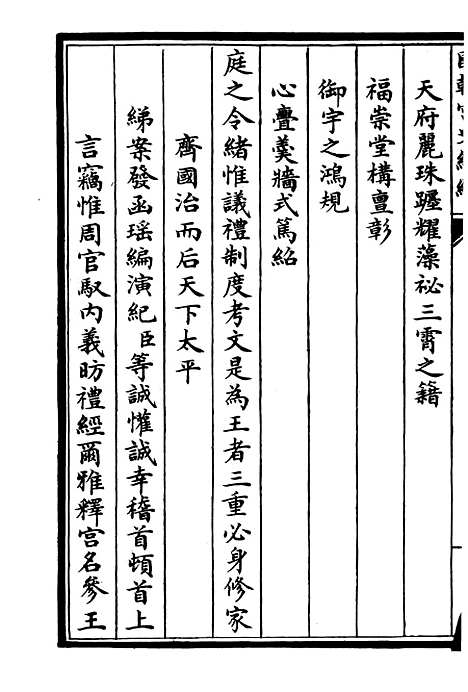 天府麗珠躔耀藻祕三霄之籍
福崇堂構亶彰
御宇之鴻規
心疊羹牆式篤紹
庭之令緒惟議禮制度考文是為王者三重必身修家
齊國治而后天下太平
綈案發函瑶編演紀臣等誠懽誠幸稽首頓首上
言竊惟周官馭內義昉禮經爾雅釋宫名參王